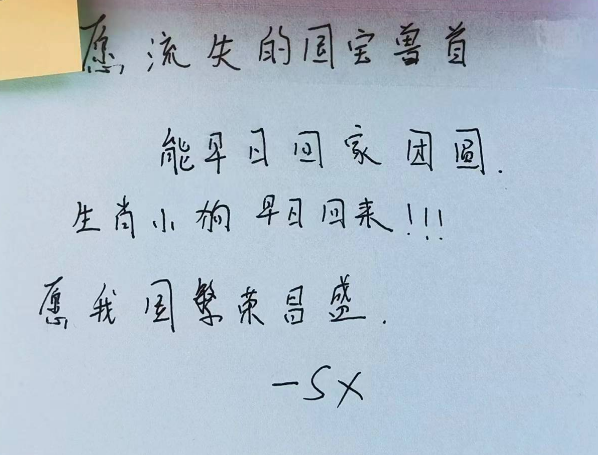 愿流失的国宝兽首
能早日回家团圆.
生肖小狗早日回来!!!
愿我国繁荣昌盛.
-SX